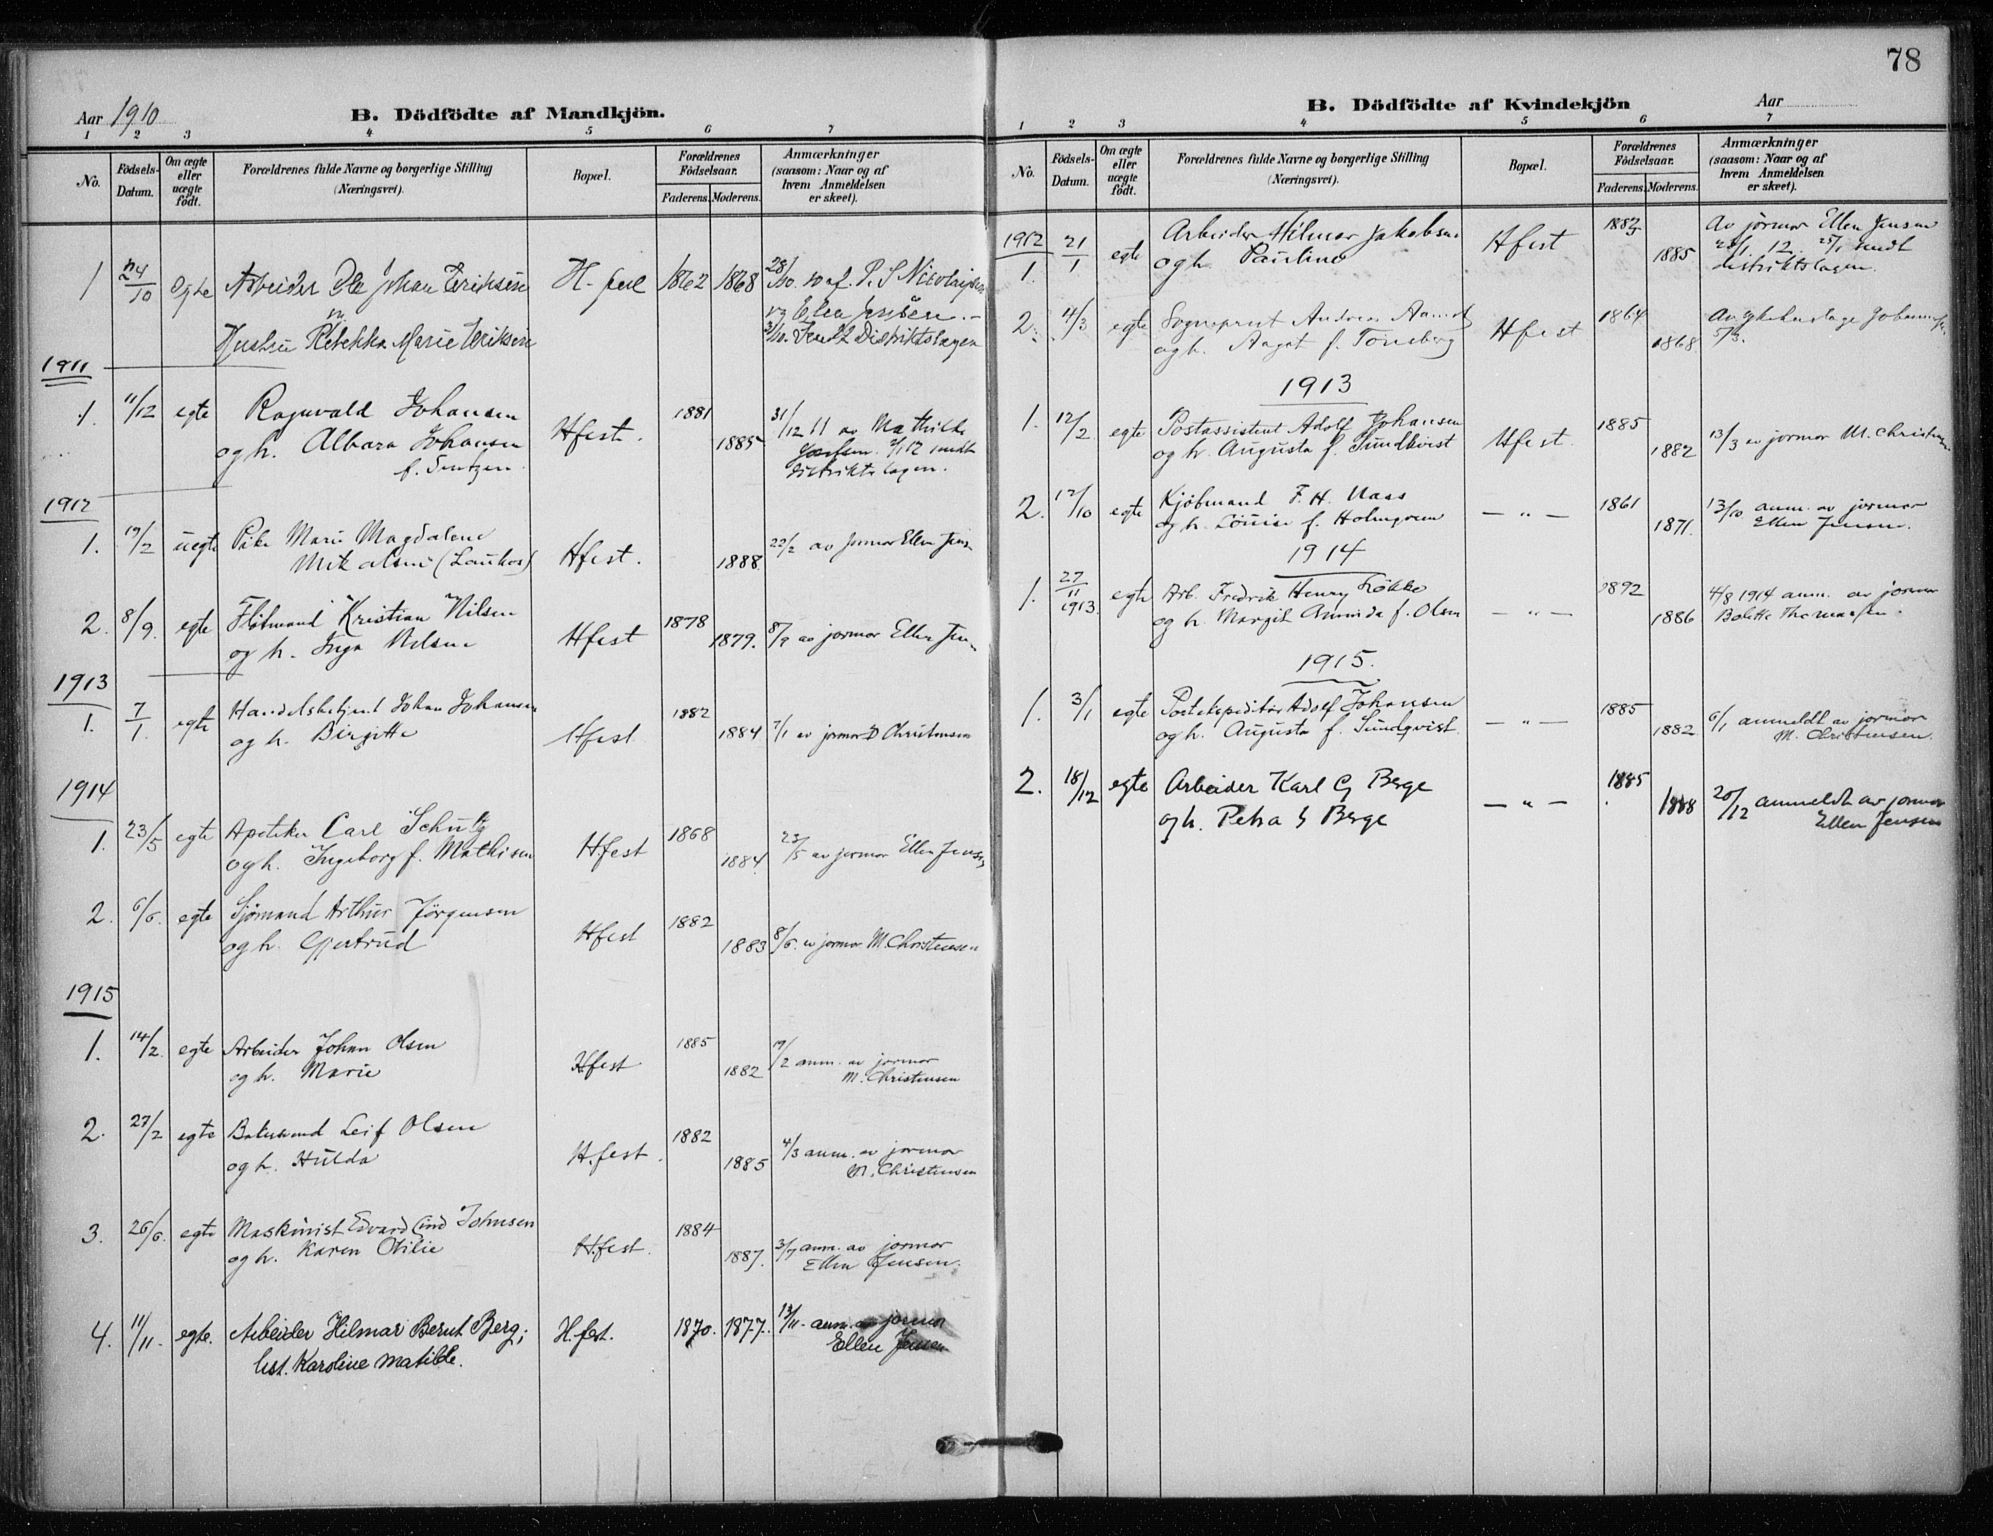 78
Aar 1910
B. Dödfödte af Mandkjön.
1 2 3 4 5 6 7
No.
Födsels-Datum.
Om ægte eller uægte födt.
Forældrenes fulde Navne og borgerlige Stilling (Næringsvei).
Bopæl.
Forældrenes Födselsaar.
Faderens. Moderens.
Anmærkninger (saasom: Naar og af hvem Anmeldelsen er skeet).
1 24/10 Egte Arbeider Ole Johan Eriksen H-fest 1862 1868 28/10
Hustru Rebekka Marie Eriksen 31/10. Sendt Distriktslægen
1911
1. 11/12 egte Ragnvald Johansen Hfest. 1881 1885 31/12 11 av Mathilde
og h. Albara Johansen sendt
f. distriktslægen.
1912
1. 19/2 uegte Pike Marie Magdalene Hfest. 1888. 22/2 av jormor Ellen Jens
Mikalsen
2. 8/9. egte Kristian Nilsen Hfest 1878 1879. 8/9 av jormor Ellen Jen
og h. Inga Nilsen
1913
1. 7/1. egte Handelsbetjent Johan Johansen Hfest 1882 1884 7/1 av jormor Christensen
og h. Birgitte
1914
1. 23/5 egte Apoteker Carl Schultz Hfest 1868 1884 av jormor Ellen Jensen
og h. Ingeborg f. Mathisen
2. 6/6. egte Sjömand Arthur Jørgensen Hfest 1882 1883 8/6. av jormor M. Christensen
og h. Gjertrud
1915
1. 14/2. egte Arbeider Johan Olsen Hfest 1885 1882 19/2 anm. av jormor
og h. Marie M. Christensen
2. 27/2 egte Leif Olsen H.fest. 1882 1885 4/3 anm. av jormor
og h. Hulda M. Christensen
3. 26/6. egte Maskinist Edvard Johnsen Hfest. 1884 1887. 3/7 anm. av jormor
og h. Karen Otilie Ellen Jensen.
4. 11/11 egte. Arbeider Hilmar Bernt Berg; H.fest. 1870. 1877. 13/11 anm. av jormor
hst. Karoline Matilde. Ellen Jensen
B. Dödfödte af Kvindekjön
Aar
1 2 3 4 5 6 7
No.
Födsels-Datum.
Om ægte eller uægte födt.
Forældrenes fulde Navne og borgerlige Stilling (Næringsvei).
Bopæl.
Forældrenes Födselsaar.
Faderens. Moderens.
Anmærkninger (saasom: Naar og af hvem Anmeldelsen er skeet).
1912
1. 21/1 egte Arbeider Hilmar Jakobsen Hfest 1883 1885 Av jormor Ellen Jensen
og h. Pauline 12. 25/1 sendt
distriktslægen.
2. 4/3 egte Sogneprest Andreas Hfest 1864 1868. Av
og h. Aagot f. Tonsberg 5/3.
1913
1. 12/2 egte Postassistent Adolf Johansen Hfest 1885 1882 13/3 av jormor M. Christensen
og h. Augusta f. Sundkvist
2. 12/10 egte Kjöbmand F. H. Maas — „ — 1861 1871. 13/10 anm. av jormor
og h. Louise f. Holmgren Ellen Jensen.
1914
1. 27/11 1913. egte Arb. Fredrik Henry Løkke — „ — 1892 1886 4/8 1914 anm. av jormor
og h. Margit Aminda f. Olsen Bolette Thomassen.
1915.
1. 3/1 egte Postekspeditör Adolf Johansen — „ — 1885 1882 6/1 anmeldt av jormor
og h. Augusta f. Sundqvist. M. Christensen.
2. 18/12 egte Arbeider Karl G Berge — „ — 1885 1888 20/12 anmeldt av jormor
og h. Petra G Berge Ellen Jensen